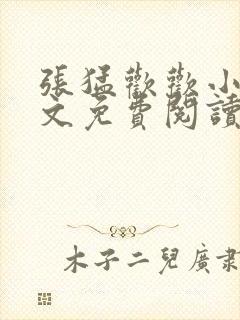 張猛歡歡小
文免費閱讀
木子二兒廣肅